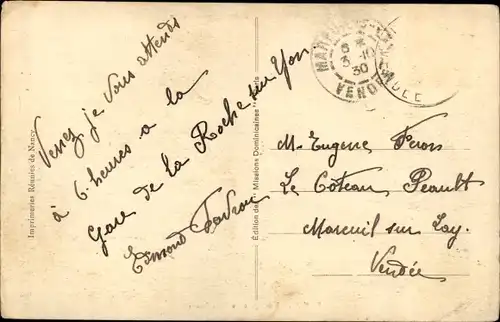 Venez je vous attends
à 6 heures a la
Gare de la Roche sur Yon
Edmond
Imprimeries Réunies de Nancy
Edition de " Missions Dominicaines "
6 *
3 -10
30
VENDÉE
M. Eugene
Le Coteau Peault
Mareuil sur Lay.
Vendée